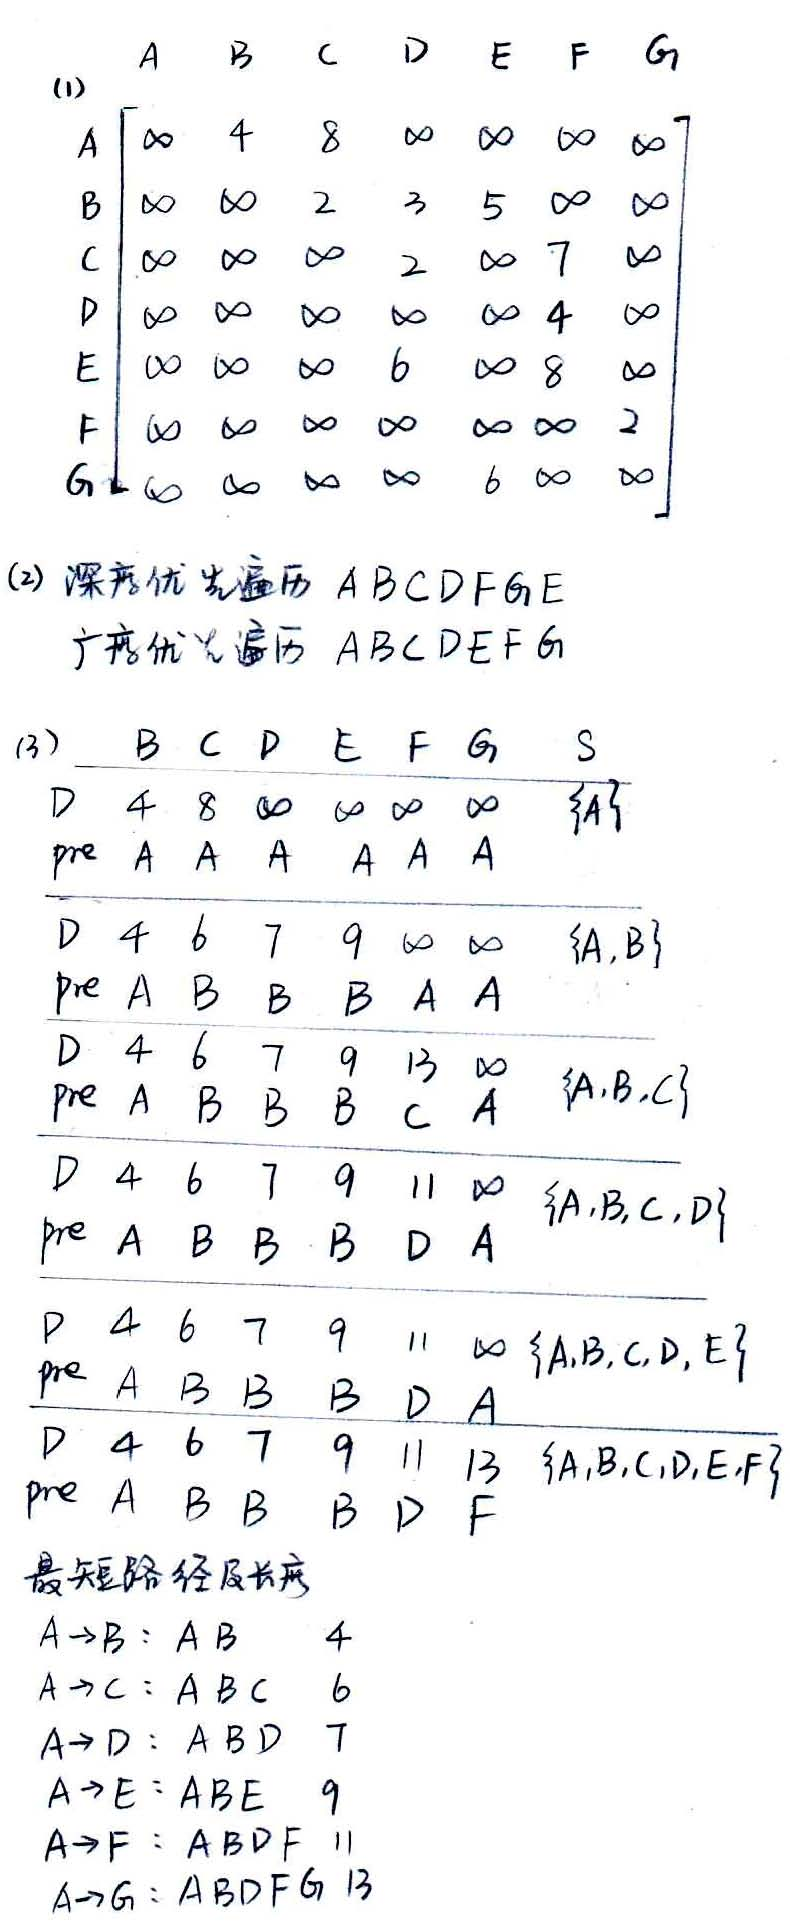 A B C D E F G
(1)
A ∞ 4 8 ∞ ∞ ∞ ∞
B ∞ ∞ 2 3 5 ∞ ∞
C ∞ ∞ ∞ 2 ∞ 7 ∞
D ∞ ∞ ∞ ∞ ∞ 4 ∞
E ∞ ∞ ∞ 6 ∞ 8 ∞
F ∞ ∞ ∞ ∞ ∞ ∞ 2
G ∞ ∞ ∞ ∞ 6 ∞ ∞
(2) 深度优先遍历 ABCDFGE
广度优先遍历 ABCDEFG
(3) B C D E F G S
D 4 8 ∞ ∞ ∞ ∞ {A}
pre A A A A A A
D 4 6 7 9 ∞ ∞ {A,B}
pre A B B B A A
D 4 6 7 9 13 ∞ {A,B,C}
pre A B B B C A
D 4 6 7 9 11 ∞ {A,B,C,D}
pre A B B B D A
D 4 6 7 9 11 ∞ {A,B,C,D,E}
pre A B B B D A
D 4 6 7 9 11 13 {A,B,C,D,E,F}
pre A B B B D F
最短路径及长度
A→B: AB 4
A→C: ABC 6
A→D: ABD 7
A→E: ABE 9
A→F: ABDF 11
A→G: ABDFG 13